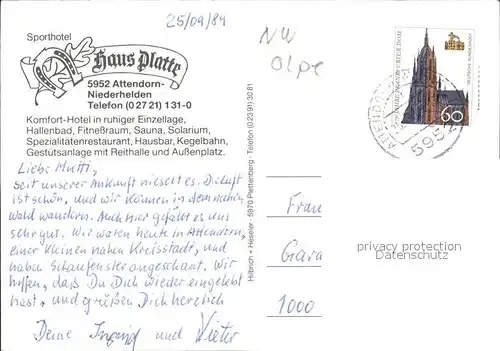 25/09/89
NW
Olpe
Sporthotel
Haus Platte
5952 Attendorn-
Niederhelden
Telefon (0 27 21) 131-0
Komfort-Hotel in ruhiger Einzellage,
Hallenbad, Fitneßraum, Sauna, Solarium,
Spezialitätenrestaurant, Hausbar, Kegelbahn,
Gestütsanlage mit Reithalle und Außenplatz.
Liebe Mutti,
seit unserer Ankunft nieselt es. Die Luft
ist schön, und wir können in dem nahen
Wald wandern. Auch hier gefällt es uns
sehr gut. Wir waren heute in Attendorn,
einer kleinen nahen Kreisstadt, und
haben Schaufenster angeschaut. Wir
hoffen, daß Du Dich wieder eingelebt
hast, und grüßen Dich herzlich
Deine Ingrid und
Hilbrich + Heseler · 5970 Plettenberg · Telefon (0 23 91) 30 81
DEUTSCHE BUNDESPOST
60
5952
Frau
Gara
1000
privacy protection
Datenschutz